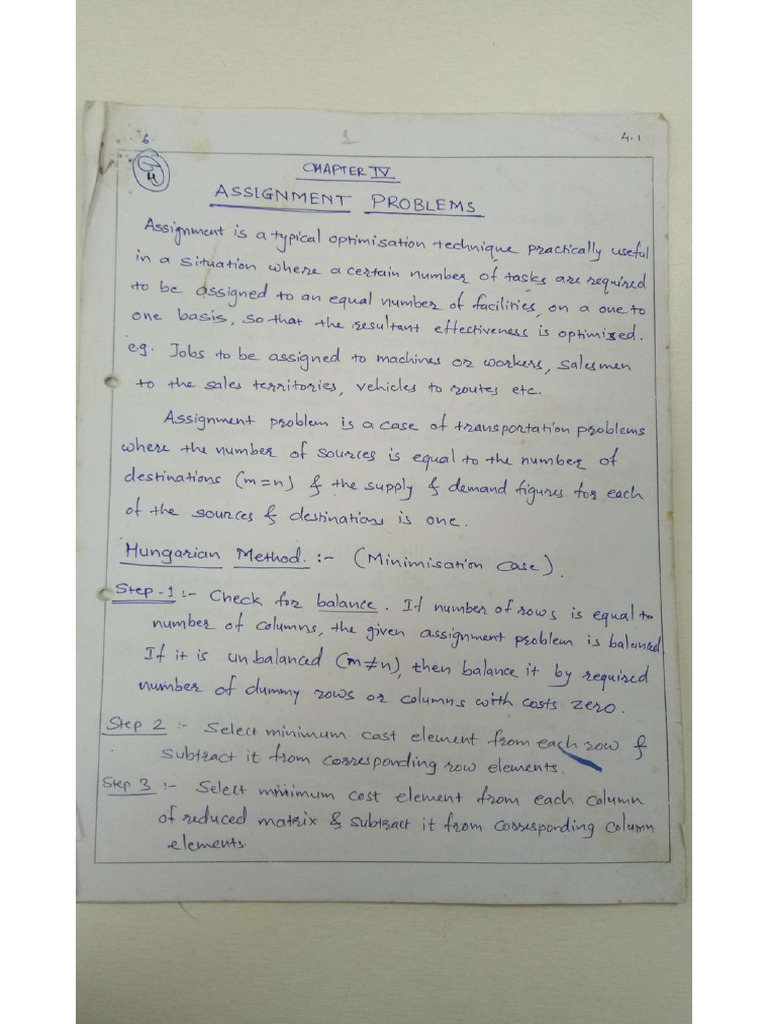 6 1 4.1
4
CHAPTER IV
ASSIGNMENT PROBLEMS
Assignment is a typical optimisation technique practically useful
in a situation where a certain number of tasks are required
to be assigned to an equal number of facilities, on a one to
one basis, so that the resultant effectiveness is optimised.
e.g. Jobs to be assigned to machines or workers, salesmen
to the sales territories, vehicles to routes etc.
Assignment problem is a case of transportation problems
where the number of sources is equal to the number of
destinations (m=n) & the supply & demand figures for each
of the sources & destinations is one.
Hungarian Method :- (Minimisation case).
Step-1 :- Check for balance. If number of rows is equal to
number of columns, the given assignment problem is balanced
If it is unbalanced (m≠n), then balance it by required
number of dummy rows or columns with costs zero.
Step 2 :- Select minimum cost element from each row &
subtract it from corresponding row elements.
Step 3 :- Select minimum cost element from each column
of reduced matrix & subtract it from corresponding column
elements.